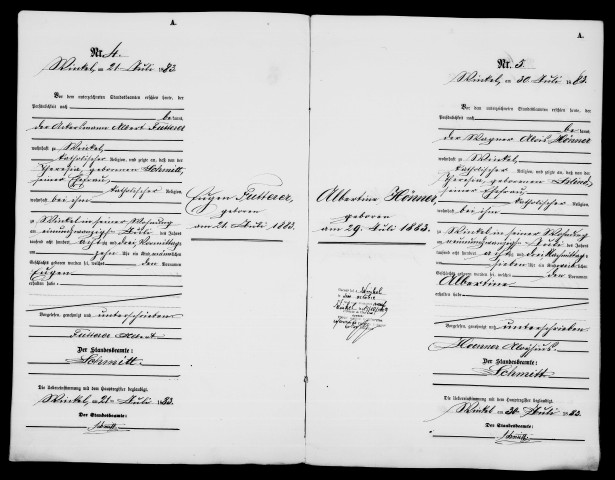 A.
Nr. 4.
Winkel, am 21. Juli 1883.
Vor dem unterzeichneten Standesbeamten erschien heute, der
Persönlichkeit nach
be kannt,
der Ackersmann Albert Futterer
wohnhaft zu Winkel,
katholischer Religion, und zeigte an, daß von der
Theresia, geborenen Schmitt,
seiner Ehefrau
katholischer Religion,
wohnhaft bei ihm
zu Winkel in seiner Wohnung
am einundzwanzigsten Juli des Jahres
tausend acht hundert achtzig und drei Vormittags
um zehn Uhr ein Kind männlichen
Geschlechts geboren worden sei, welches den Vornamen
Eugen
erhalten habe.
Vorgelesen, genehmigt und unterschrieben
Futterer Albert
Der Standesbeamte:
Schmitt
Die Uebereinstimmung mit dem Hauptregister beglaubigt.
Winkel, am 21. Juli 1883.
Der Standesbeamte:
Schmitt
Eugen Futterer,
geboren
am 21. Juli 1883.
A.
Nr. 5.
Winkel, am 30. Juli 1883.
Vor dem unterzeichneten Standesbeamten erschien heute, der
Persönlichkeit nach
be kannt,
der Wagner Alois Hönner
wohnhaft zu Winkel,
katholischer Religion, und zeigte an, daß von der
Theresia, geborenen
seiner Ehefrau
katholischer Religion,
wohnhaft bei ihm
zu Winkel in seiner Wohnung
am neunundzwanzigsten Juli des Jahres
tausend acht hundert achtzig und drei Nachmittags
um sieben Uhr ein Kind weiblichen
Geschlechts geboren worden sei, welches den Vornamen
Albertine
erhalten habe.
Vorgelesen, genehmigt und unterschrieben
Hoenner Aloysius
Der Standesbeamte:
Schmitt
Die Uebereinstimmung mit dem Hauptregister beglaubigt.
Winkel am 30. Juli 1883.
Der Standesbeamte:
Schmitt
Albertine Hönner,
geboren
am 29. Juli 1883.